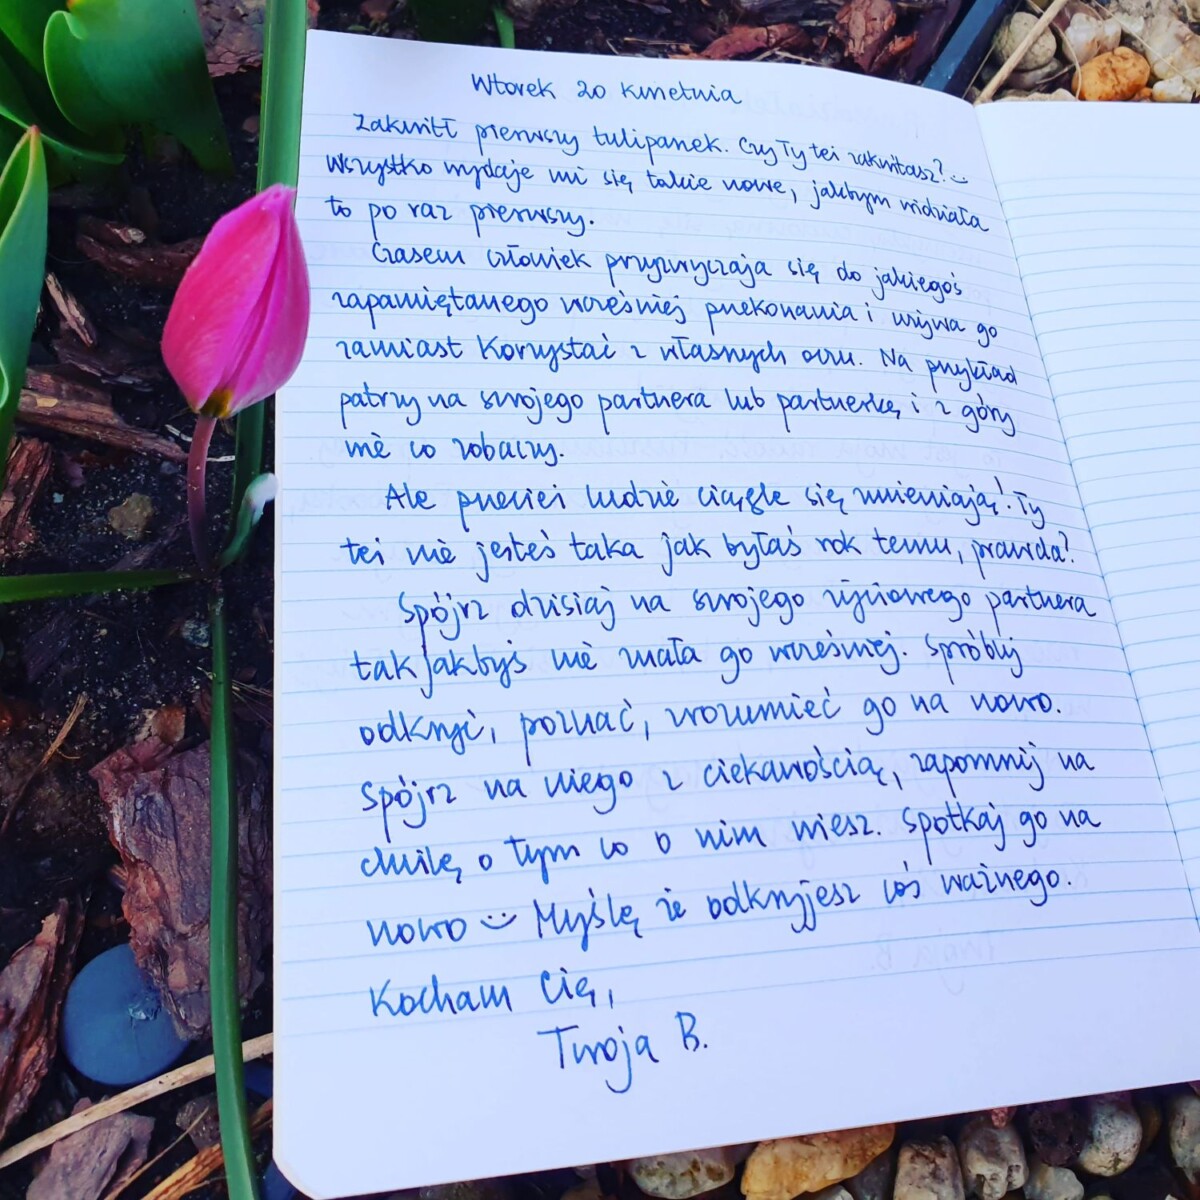 Wtorek 20 kwietnia
Zakwitł pierwszy tulipanek. Czy Ty też zakwitasz? :)
Wszystko wydaje mi się takie nowe, jakbym widziała
to po raz pierwszy.
Czasem człowiek przyzwyczaja się do jakiegoś
zapamiętanego wcześniej przekonania i używa go
zamiast korzystać z własnych oczu. Na przykład
patrzy na swojego partnera lub partnerkę i z góry
wie co zobaczy.
Ale przecież ludzie ciągle się zmieniają! Ty
też nie jesteś taka jak byłaś rok temu, prawda?
Spójrz dzisiaj na swojego życiowego partnera
tak jakbyś nie znała go wcześniej. Spróbuj
odkryć, poznać, zrozumieć go na nowo.
Spójrz na niego z ciekawością, zapomnij na
chwilę o tym co o nim wiesz. Spotkaj go na
nowo :) Myślę że odkryjesz coś ważnego.
Kocham Cię,
Twoja B.